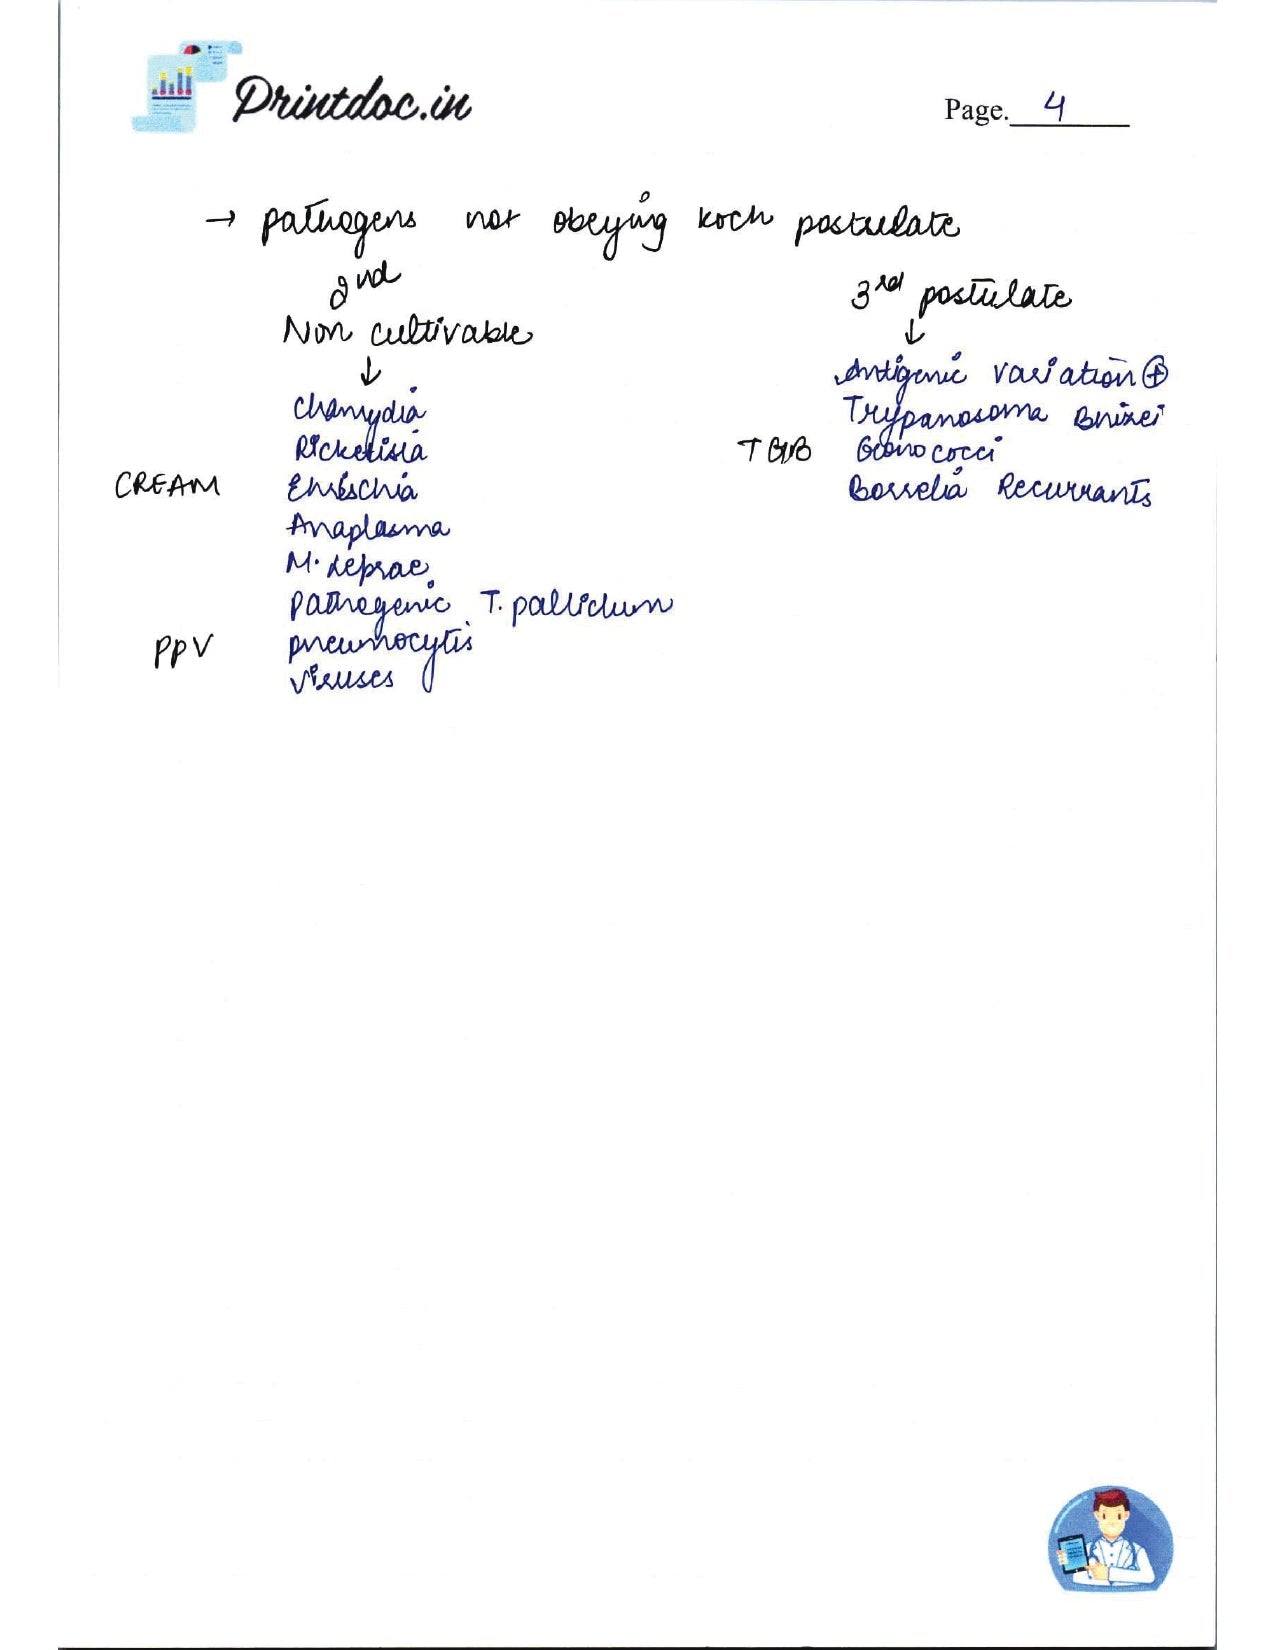 Printdoc.in
Page. 4
→ pathogens not obeying koch postulate
2nd
Non cultivable
↓
Chamydia
Ricketisia
CREAM Ehrischia
Anaplasma
M. leprae
pathogenic T. pallidum
PPV pneumocytis
Viruses
3rd postulate
↓
Antigenic variation ⊕
Trypanosoma Bruzei
TGB Gonococci
Borrelia Recurrants